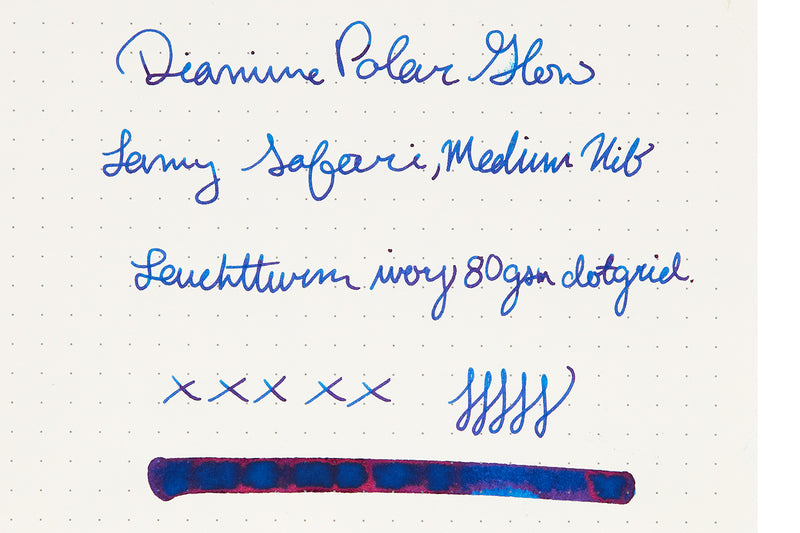 Diamine Polar Glow
Lamy Safari, Medium Nib
Leuchtturm ivory 80gsm dotgrid.
x x x x x